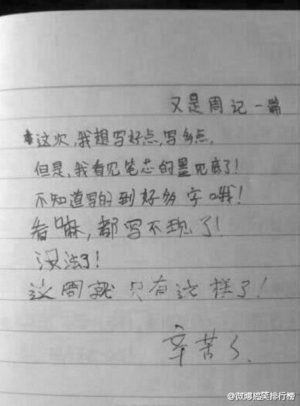 又是周记一篇
这次,我想写好点,写多点,
但是,我看见笔芯的墨见底了!
不知道写的到好多字哦!
看嘛,都写不现了!
没法了!
这周就只有这样了!
辛苦了.
@微博搞笑排行榜